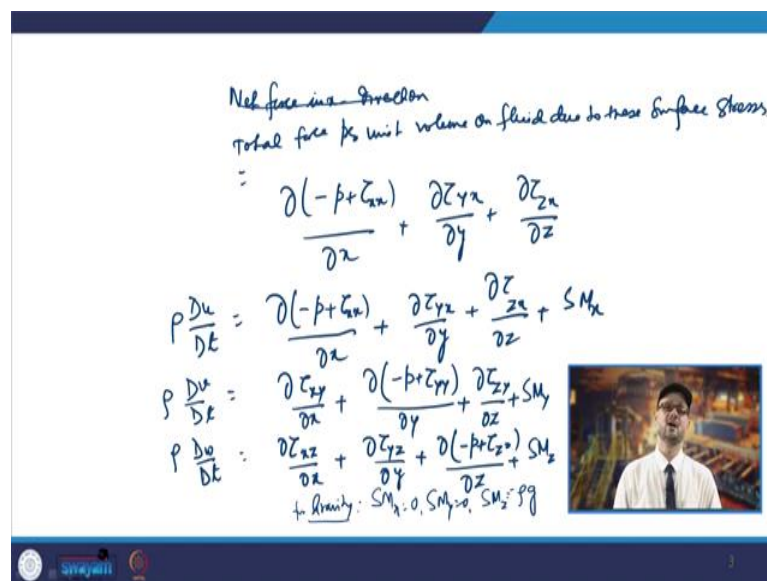 Net force in x-direction
Total force per unit volume on fluid due to these surface stresses
= ∂(-p+τxx)/∂x + ∂τyx/∂y + ∂τzx/∂z
ρ Du/Dt = ∂(-p+τxx)/∂x + ∂τyx/∂y + ∂τzx/∂z + SMx
ρ Dv/Dt = ∂τxy/∂x + ∂(-p+τyy)/∂y + ∂τzy/∂z + SMy
ρ Dw/Dt = ∂τxz/∂x + ∂τyz/∂y + ∂(-p+τzz)/∂z + SMz
for Gravity: SMx=0, SMy=0, SMz=-ρg
swayam
3